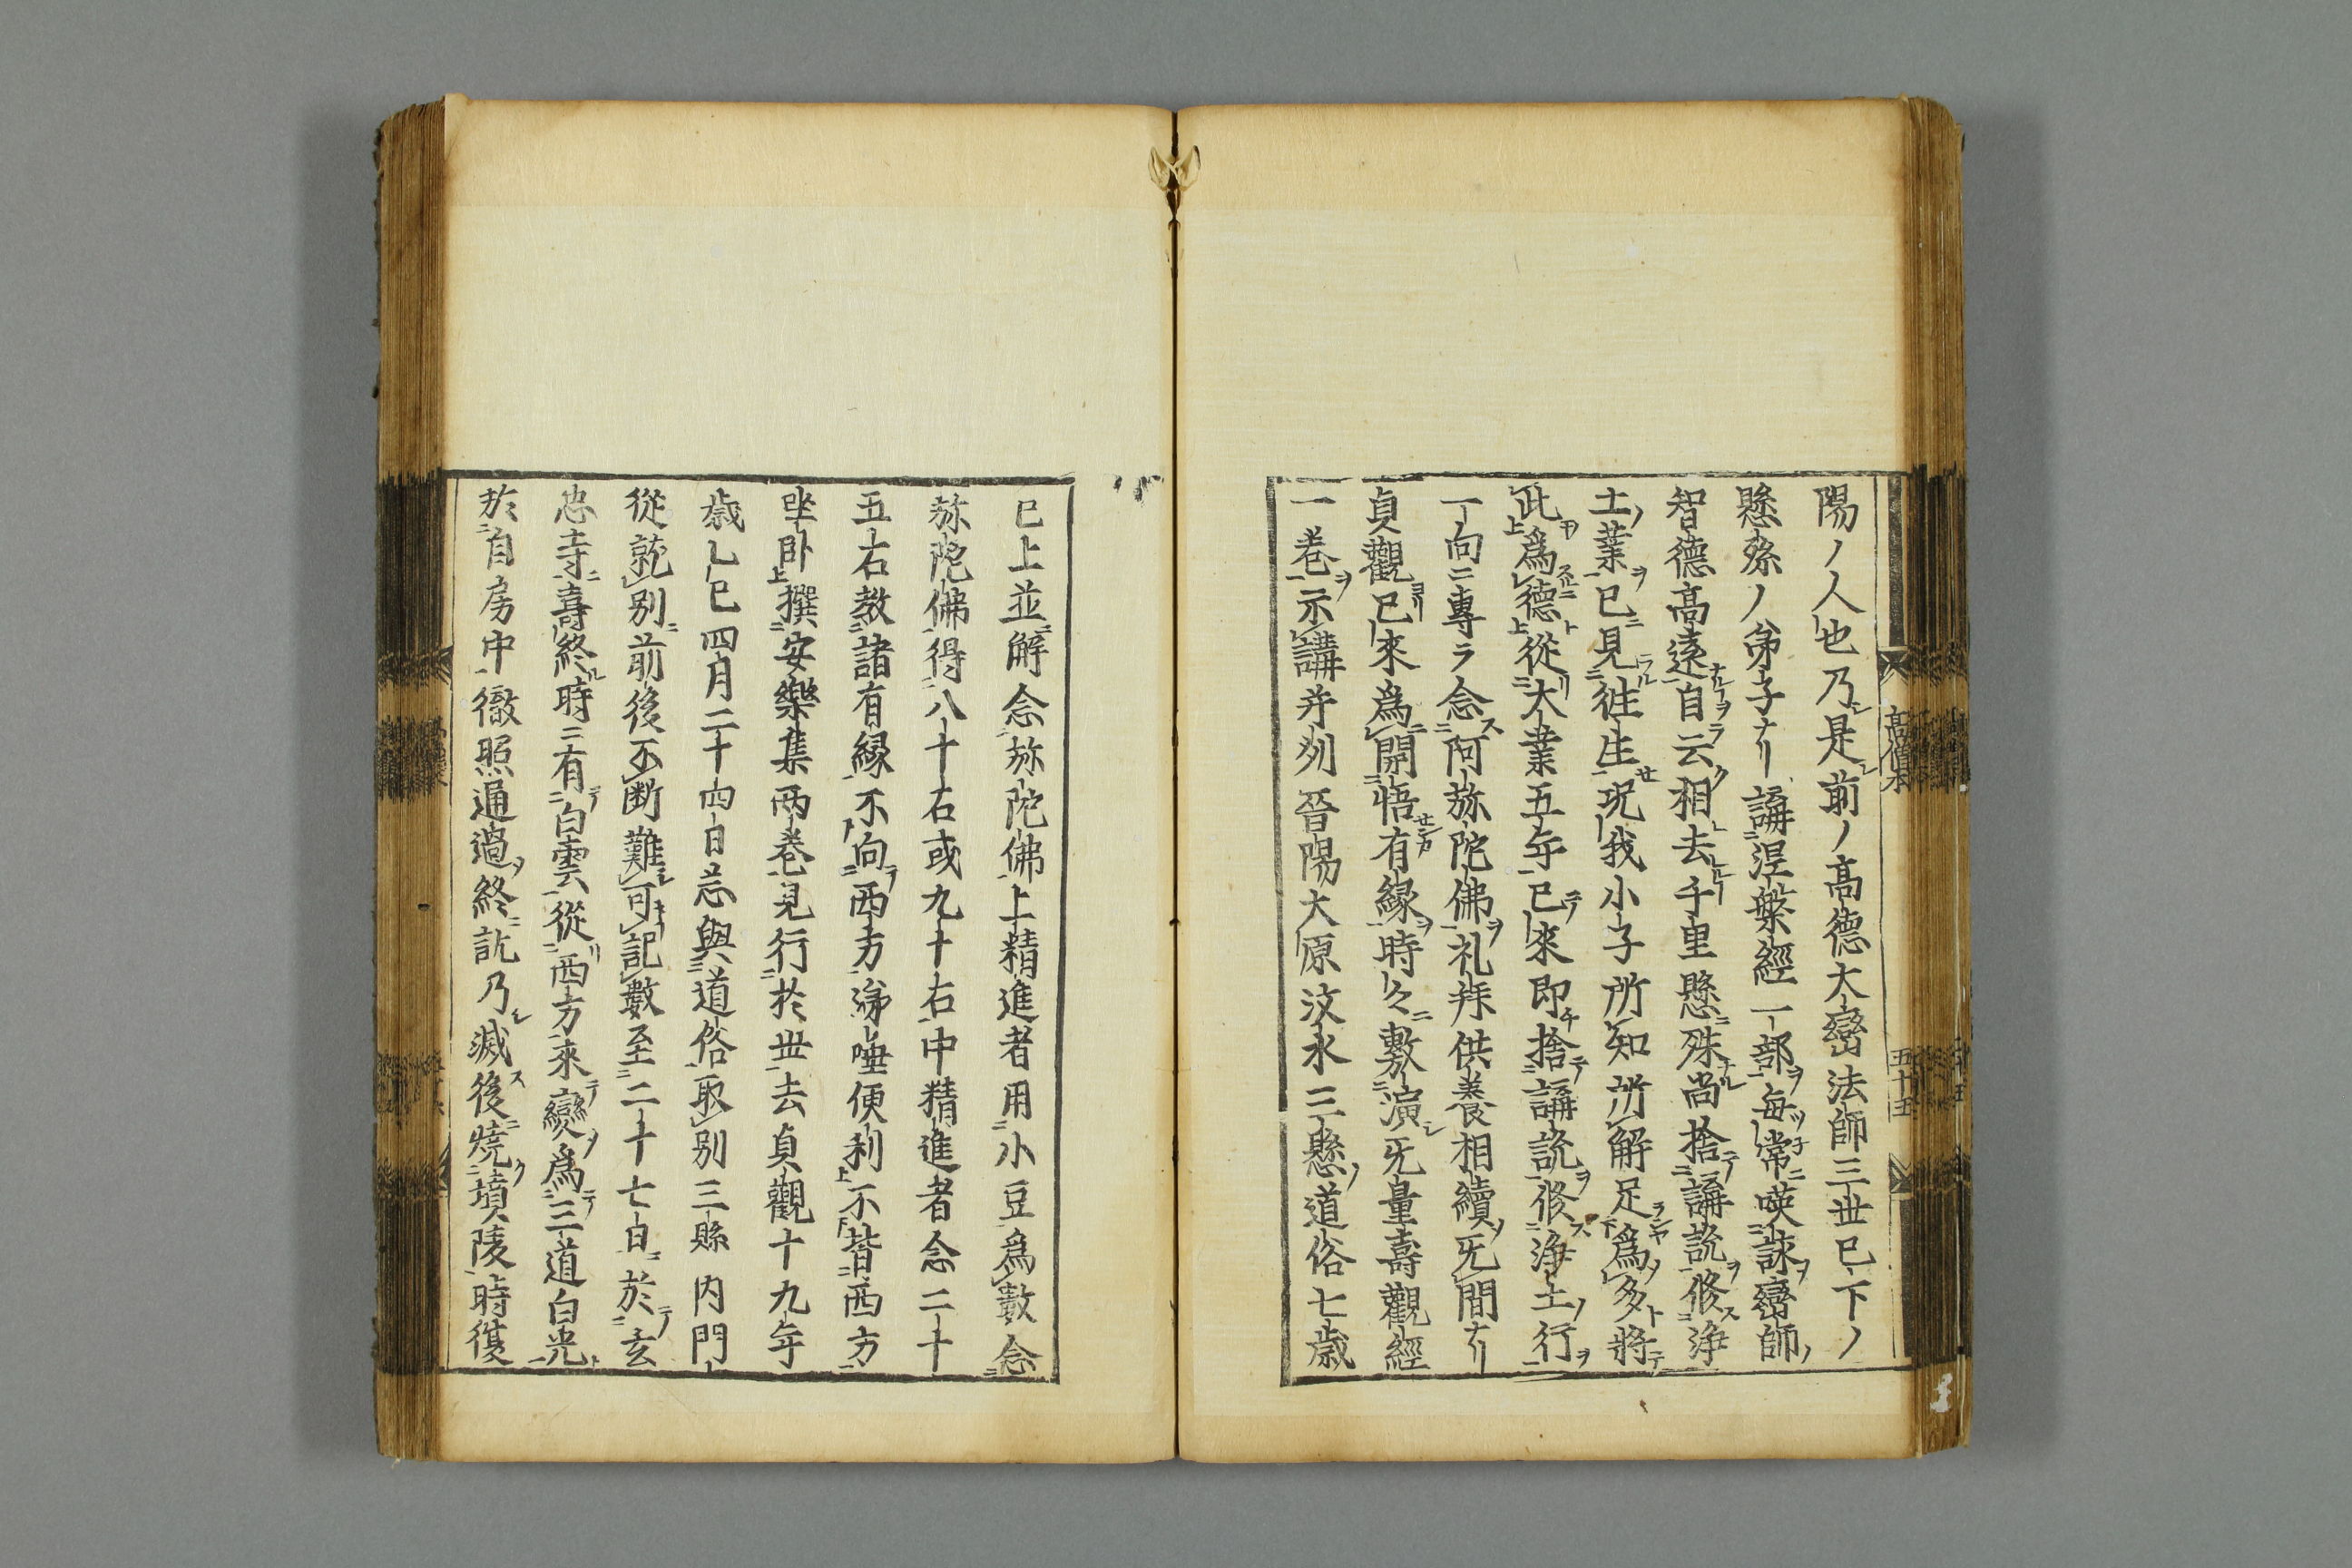 陽ノ人也乃是前ノ高德大巒法師三世已下ノ
懸孫ノ弟子ナリ講涅槃經一部ヲ每常ニ嘆詠巒師ノ
智德高遠自云相去千里懸殊尚捨講說修淨
土ノ業ヲ已見往生況我小子所知所解足爲多將
此爲德從大業五年已來即捨講說修淨土ノ行ヲ
一向ニ專ラ念阿弥陀佛ヲ礼拜供養相續无間ナリ
貞觀已來爲開悟有緣時々敷演无量壽觀經
一卷ヲ示講并州晉陽大原汶水三懸ノ道俗七歲
已上並解念弥陀佛上精進者用小豆爲數念
弥陀佛得八十石或九十石中精進者念二十
五石教諸有緣不向西方涕唾便利不背西方
坐臥撰安樂集兩卷見行於世去貞觀十九年
歲乙巳四月二十四日忌與道俗取別三縣内門
從就別前後不斷難可記數至二十七日於玄
忠寺壽終時ニ有白雲從西方來變爲三道白光
於自房中徹照通過終訖乃滅後燒墳陵時復
高僧本
五十五